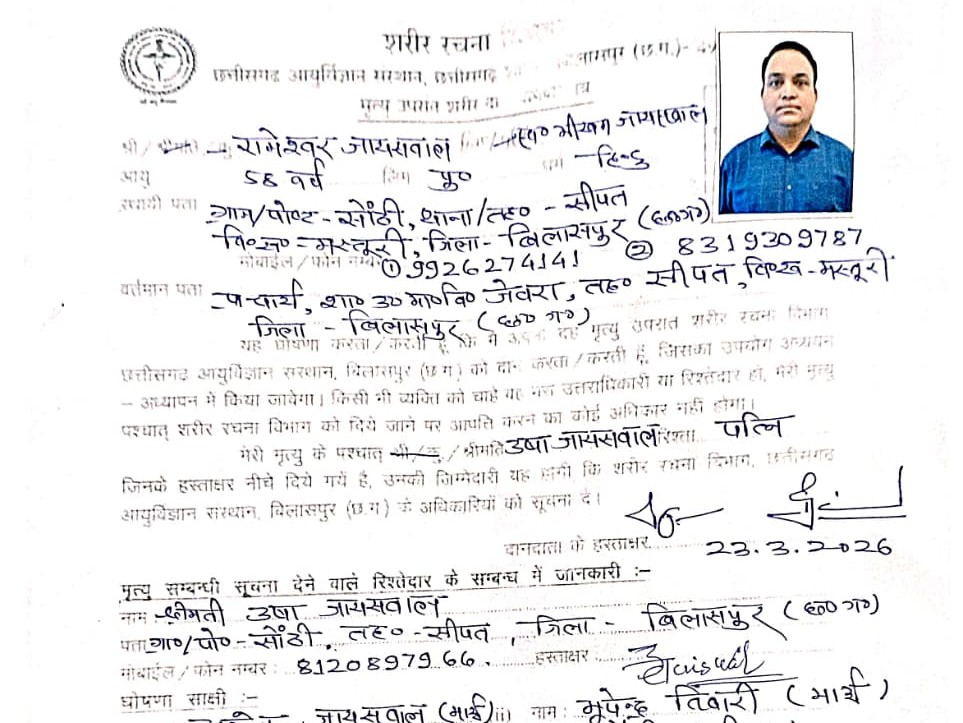 शरीर रचना
छत्तीसगढ़ आयुर्विज्ञान संस्थान, छत्तीसगढ़ बिलासपुर (छ.ग.)-
मृत्यु उपरांत शरीर दा
श्री / श्रीमति / कु - रामेश्वर जायसवाल पिता/ स्व० भीखम जायसवाल
आयु 58 वर्ष लिंग पु० धर्म - हिन्दु
स्थायी पता ग्राम/पोस्ट - सोंठी, थाना/तह० - सीपत
वि०ख० - मस्तूरी, जिला - बिलासपुर (छ०ग०)
मोबाईल / फोन नम्बर ① 9926274141 ② 8319309787
वर्तमान पता - प्राचार्य, शा० उ० मा० वि० जेवरा, तह० सीपत, वि०ख - मस्तूरी
जिला - बिलासपुर (छ०ग०)
यह घोषणा करता / करती हूँ कि मैं देह मृत्यु उपरांत शरीर रचना विभाग
छत्तीसगढ आयुर्विज्ञान संस्थान, बिलासपुर (छ.ग) को दान करता / करती हूँ, जिसका उपयोग अध्ययन
- अध्यापन में किया जावेगा। किसी भी व्यक्ति को चाहे वह मेरा उत्तराधिकारी या रिश्तेदार हो, मेरी मृत्यु
पश्चात् शरीर रचना विभाग को दिये जाने पर आपति करने का कोई अधिकार नहीं होगा।
मेरी मृत्यु के पश्चात् श्री / कु / श्रीमति उषा जायसवाल रिश्ता पत्नि
जिनके हस्ताक्षर नीचे दिये गयें है, उनकी जिम्मेदारी यह होगी कि शरीर रचना विभाग, छत्तीसगढ
आयुर्विज्ञान संस्थान, बिलासपुर (छ.ग) के अधिकारियों को सूचना दें।
दानदाता के हस्ताक्षर
23.3.2026
मृत्यु सम्बन्धी सूचना देने वालें रिश्तेदार के सम्बन्ध में जानकारी :-
नाम - श्रीमती उषा जायसवाल
पता ग्रा०/पो० - सोंठी, तह० - सीपत, जिला - बिलासपुर (छ०ग०)
मोबाईल / फोन नम्बर : 8120897966. हस्ताक्षर : Jaiswal
घोषणा साक्षी :-
जायसवाल (मार्श) ii) नाम : भूपेन्द्र तिवारी (मार्श)